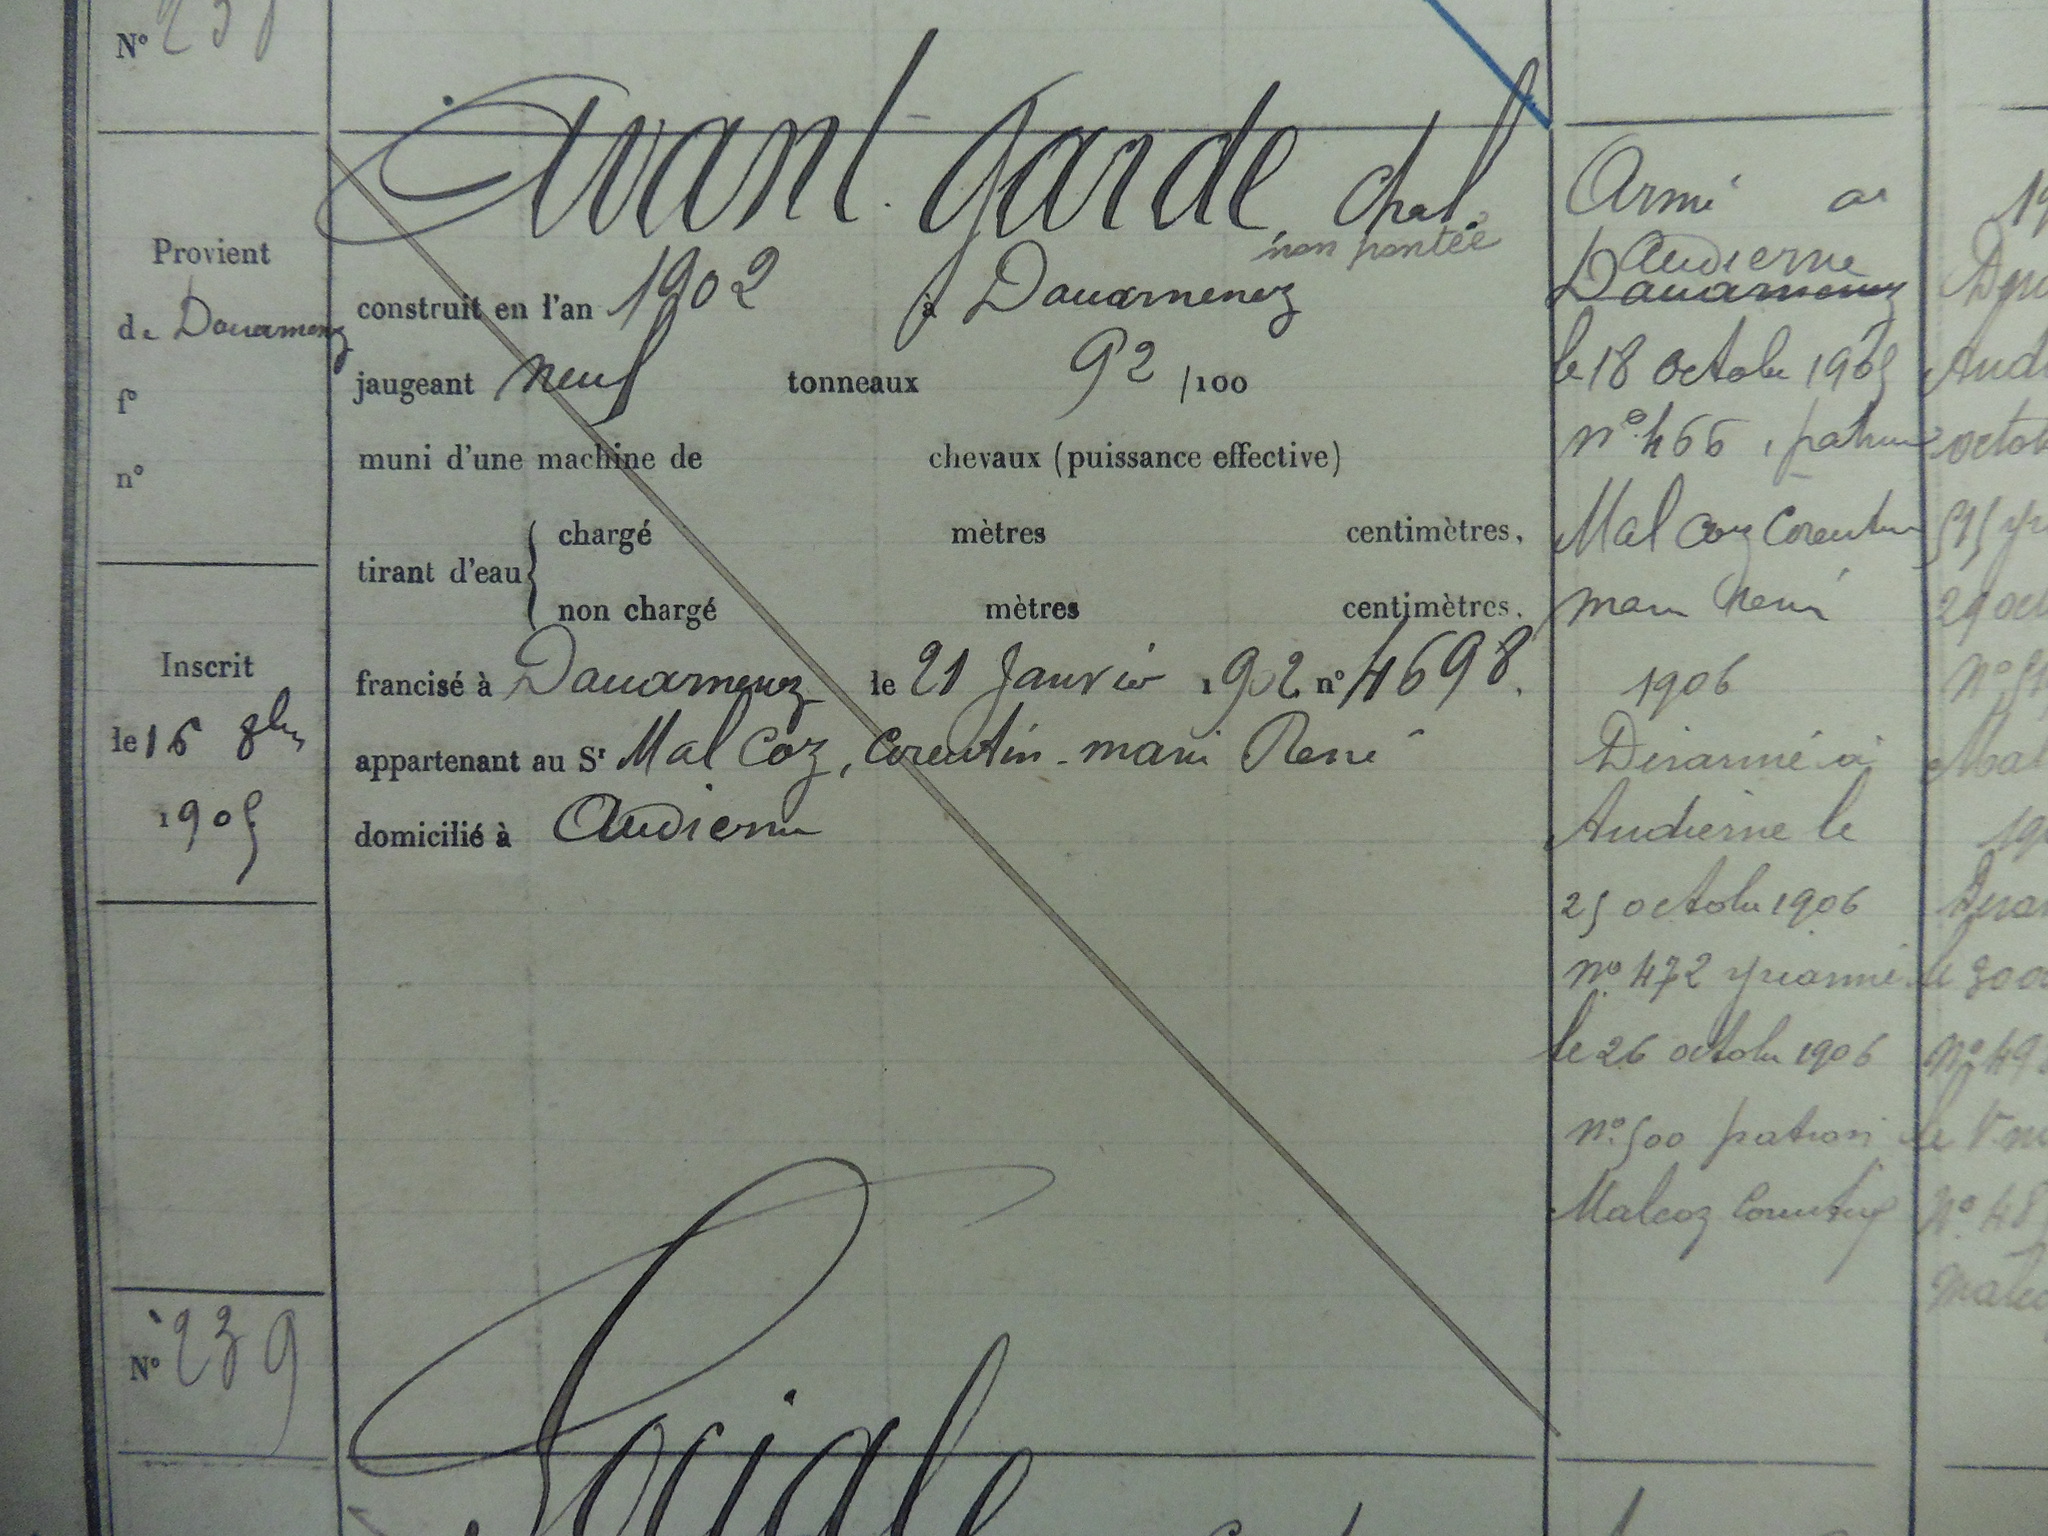 N°
Avant-Garde, chal.
non pontée
Provient
de Douarnenez
f°
n°
construit en l'an 1902 à Douarnenez
jaugeant neuf tonneaux 92 /100
muni d'une machine de chevaux (puissance effective)
tirant d'eau
chargé mètres centimètres,
non chargé mètres centimètres.
Inscrit
le 16 8bre
1905
francisé à Douarnenez le 21 Janvier 1902 n° 4698.
appartenant au Sr Mal Coz, Corentin-marie René
domicilié à Audierne
N° 239
Sociale
Armé à
Audierne
Douarnenez
le 18 octobre 1905
n° 466, patron
Mal Coz Corentin
marie René
1906
Désarmé à
Audierne le
25 octobre 1906
n° 472 réarmé
le 26 octobre 1906
n° 500 patron
Malcoz Corentin
19
octob
29 oct
Mal
190
Désar
le 30 oc